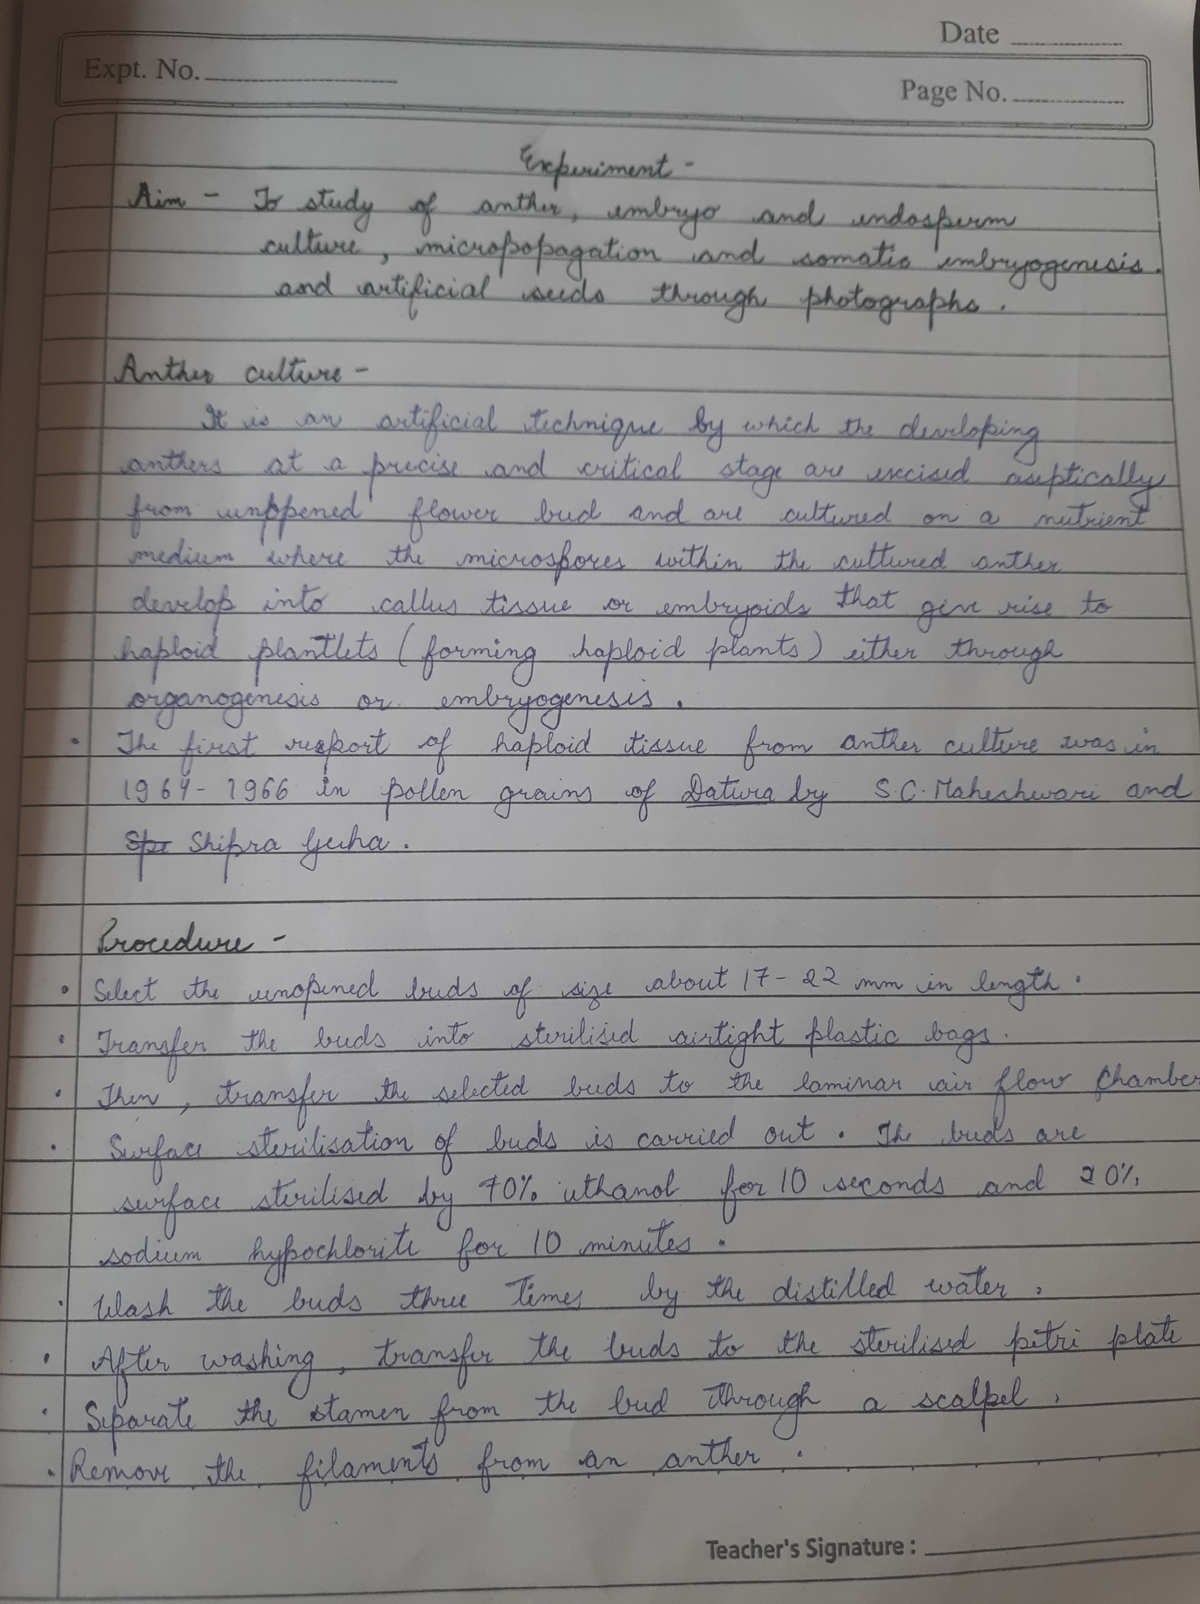 Date
Expt. No.
Page No.
Experiment -
Aim - To study of anther, embryo and endosperm
culture, micropopagation and somatic embryogenesis.
and artificial seeds through photographs.
Anther culture -
It is an artificial technique by which the developing
anthers at a precise and critical stage are excised aseptically
from unopened flower bud and are cultured on a nutrient
medium where the microspores within the cultured anther
develop into callus tissue or embryoids that give rise to
haploid plantlets (forming haploid plants) either through
organogenesis or embryogenesis.
• The first report of haploid tissue from anther culture was in
1964-1966 in pollen grains of Datura by S.C. Maheshwari and
Shipra Guha.
Procedure -
• Select the unopened buds of size about 17-22 mm in length.
• Transfer the buds into sterilised airtight plastic bags.
• Then, transfer the selected buds to the laminar air flow chamber
• Surface sterilisation of buds is carried out. The buds are
surface sterilised by 70% ethanol for 10 seconds and 20%
sodium hypochlorite for 10 minutes.
• Wash the buds three times by the distilled water.
• After washing, transfer the buds to the sterilised petri plate
• Separate the stamen from the bud through a scalpel.
• Remove the filaments from an anther.
Teacher's Signature :